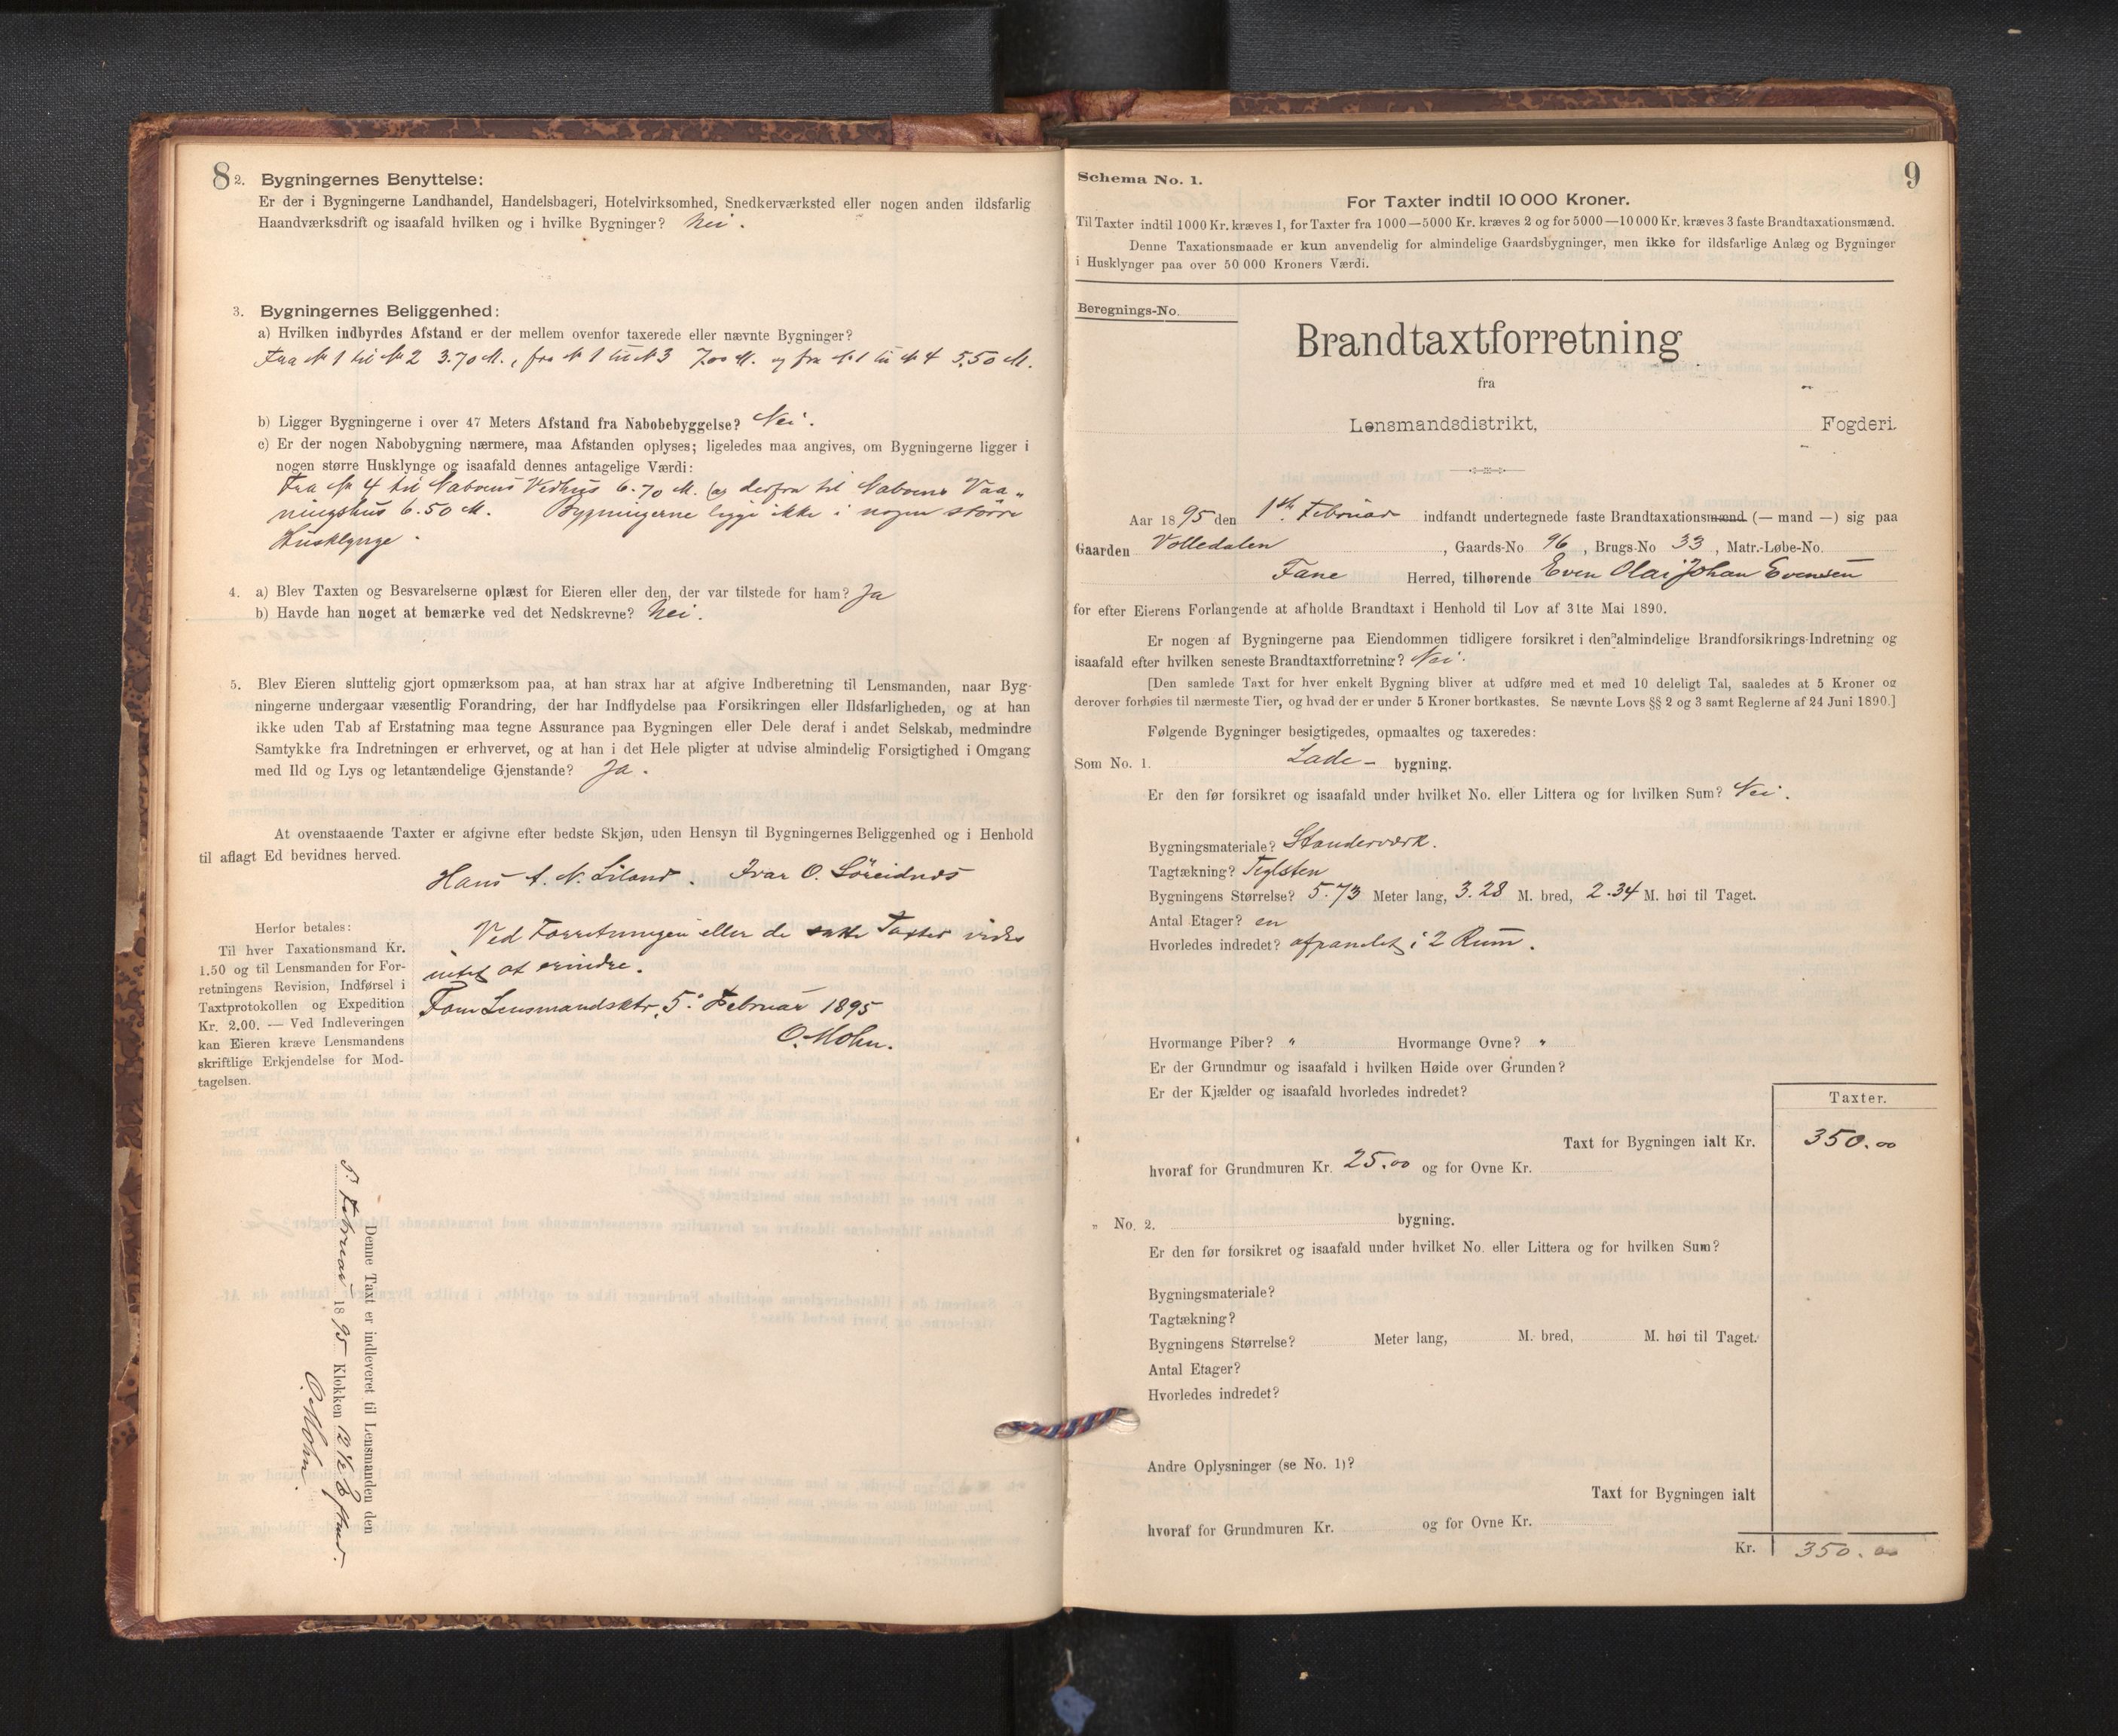 8
2. Bygningernes Benyttelse:
Er der i Bygningerne Landhandel, Handelsbageri, Hotelvirksomhed, Snedkerværksted eller nogen anden ildsfarlig
Haandværksdrift og isaafald hvilken og i hvilke Bygninger? Nei.
3. Bygningernes Beliggenhed:
a) Hvilken indbyrdes Afstand er der mellem ovenfor taxerede eller nævnte Bygninger?
Fra № 1 til № 2 3.70 M., fra № 1 til № 3 7.00 M. og fra № 1 til № 4 5.50 M.
b) Ligger Bygningerne i over 47 Meters Afstand fra Nabobebyggelse? Nei.
c) Er der nogen Nabobygning nærmere, maa Afstanden oplyses; ligeledes maa angives, om Bygningerne ligger i
nogen større Husklynge og isaafald dennes antagelige Værdi:
Fra № 4 til Naboens Vedhus 6.70 M. og derfra til Naboens Vaa„
ningshus 6.50 M. Bygningerne ligge ikke i nogen større
Husklynge.
4. a) Blev Taxten og Besvarelserne oplæst for Eieren eller den, der var tilstede for ham? Ja
b) Havde han noget at bemærke ved det Nedskrevne? Nei.
5. Blev Eieren sluttelig gjort opmærksom paa, at han strax har at afgive Indberetning til Lensmanden, naar Byg-
ningerne undergaar væsentlig Forandring, der har Indflydelse paa Forsikringen eller Ildsfarligheden, og at han
ikke uden Tab af Erstatning maa tegne Assurance paa Bygningen eller Dele deraf i andet Selskab, medmindre
Samtykke fra Indretningen er erhvervet, og at han i det Hele pligter at udvise almindelig Forsigtighed i Omgang
med Ild og Lys og letantændelige Gjenstande? Ja.
At ovenstaaende Taxter er afgivne efter bedste Skjøn, uden Hensyn til Bygningernes Beliggenhed og i Henhold
til aflagt Ed bevidnes herved.
Hans A. N. Liland. Ivar O. Söreidnes
Herfor betales:
Til hver Taxationsmand Kr.
1.50 og til Lensmanden for For-
retningens Revision, Indførsel i
Taxtprotokollen og Expedition
Kr. 2.00. — Ved Indleveringen
kan Eieren kræve Lensmandens
skriftlige Erkjendelse for Mod-
tagelsen.
Ved Forretningen eller de satte Taxter vides
intet at erindre.
Fane Lensmandsktr. 5. Februar 1895
O. Mohn.
Denne Taxt er indleveret til Lensmanden den
5. Februar 1895 Klokken 12 ½ Eftmd.
O. Mohn.
9
Schema No. 1.
For Taxter indtil 10 000 Kroner.
Til Taxter indtil 1000 Kr. kræves 1, for Taxter fra 1000—5000 Kr. kræves 2 og for 5000—10000 Kr. kræves 3 faste Brandtaxationsmænd.
Denne Taxationsmaade er kun anvendelig for almindelige Gaardsbygninger, men ikke for ildsfarlige Anlæg og Bygninger
i Husklynger paa over 50 000 Kroners Værdi.
Beregnings-No.
Brandtaxtforretning
fra
Lensmandsdistrikt, Fogderi.
Aar 1895 den 1ste Februar indfandt undertegnede faste Brandtaxationsmænd (— mand —) sig paa
Gaarden Volledalen, Gaards-No 96, Brugs-No 33, Matr.-Løbe-No.
Fane Herred, tilhørende Even Olai Johan Evensen
for efter Eierens Forlangende at afholde Brandtaxt i Henhold til Lov af 31te Mai 1890.
Er nogen af Bygningerne paa Eiendommen tidligere forsikret i den almindelige Brandforsikrings-Indretning og
isaafald efter hvilken seneste Brandtaxtforretning? Nei.
[Den samlede Taxt for hver enkelt Bygning bliver at udføre med et med 10 deleligt Tal, saaledes at 5 Kroner og
derover forhøies til nærmeste Tier, og hvad der er under 5 Kroner bortkastes. Se nævnte Lovs §§ 2 og 3 samt Reglerne af 24 Juni 1890.]
Følgende Bygninger besigtigedes, opmaaltes og taxeredes:
Som No. 1. Lade- bygning.
Er den før forsikret og isaafald under hvilket No. eller Littera og for hvilken Sum? Nei.
Bygningsmateriale? Standerværk.
Tagtækning? Teglsten
Bygningens Størrelse? 5.73 Meter lang, 3.28 M. bred, 2.34 M. høi til Taget.
Antal Etager? en
Hvorledes indredet? afpanelet i 2 Rum.
Hvormange Piber? " Hvormange Ovne? "
Er der Grundmur og isaafald i hvilken Høide over Grunden?
Er der Kjælder og isaafald hvorledes indredet?
Taxter.
Taxt for Bygningen ialt Kr. 350.00
hvoraf for Grundmuren Kr. 25.00 og for Ovne Kr.
„ No. 2. bygning.
Er den før forsikret og isaafald under hvilket No. eller Littera og for hvilken Sum?
Bygningsmateriale?
Tagtækning?
Bygningens Størrelse? Meter lang, M. bred, M. høi til Taget.
Antal Etager?
Hvorledes indredet?
Andre Oplysninger (se No. 1)?
Taxt for Bygningen ialt
hvoraf for Grundmuren Kr. og for Ovne Kr.
Kr. 350.00